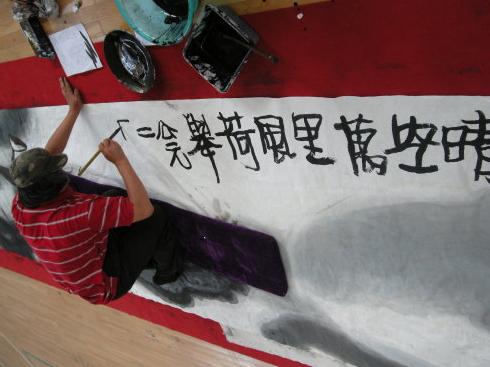 晴空萬里風荷舉公元二